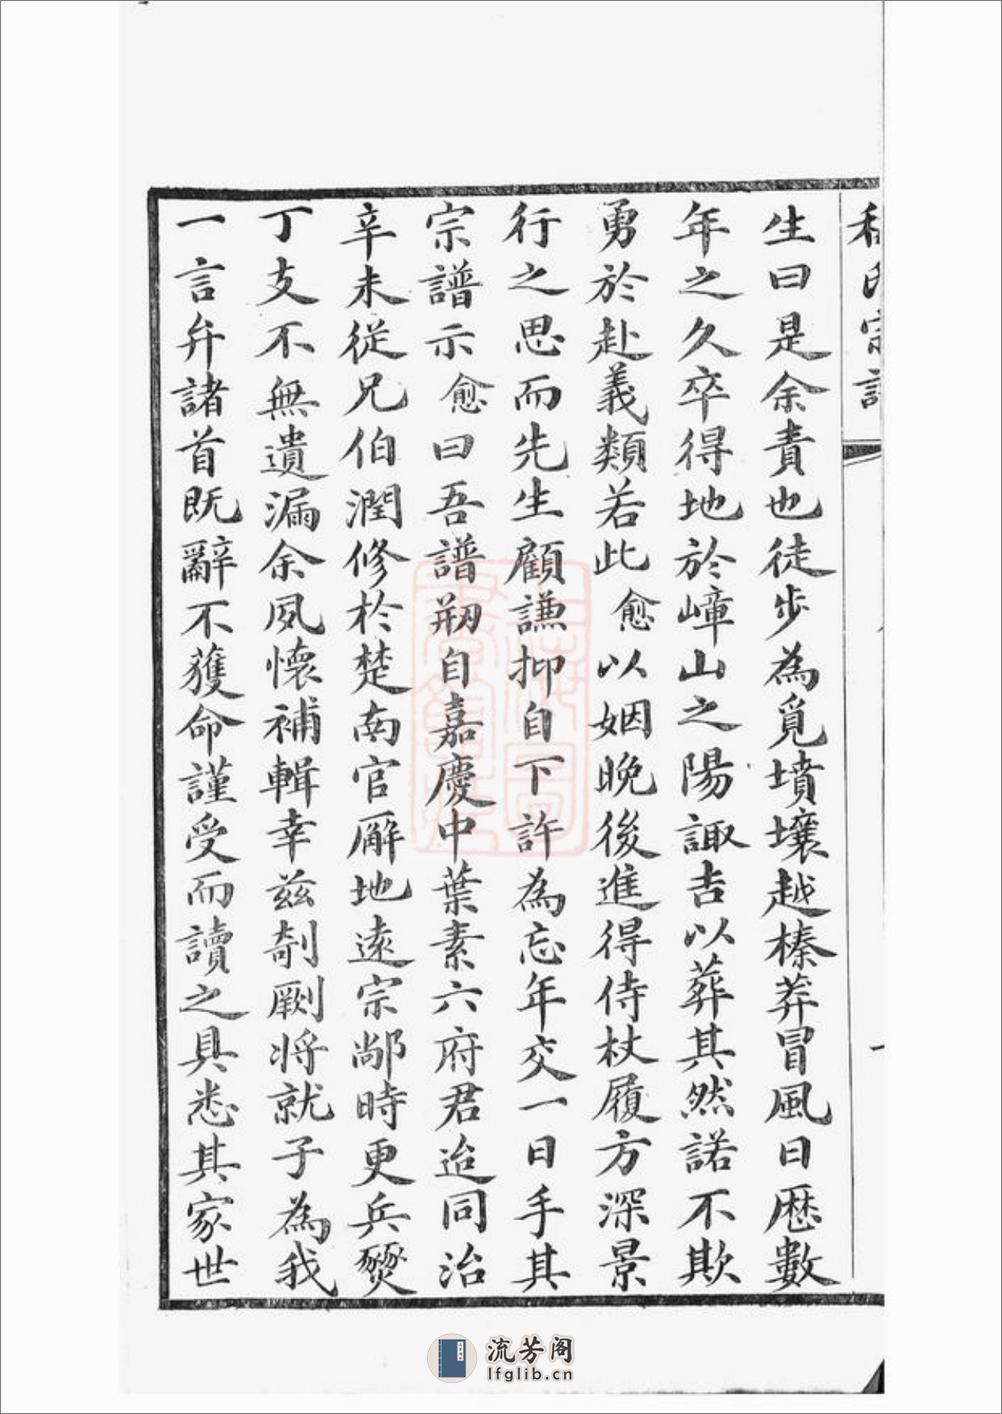 氏宗譜
生曰是余責也徒步為覓墳壤越榛莽冒風日歷數
年之久卒得地於嶂山之陽諏吉以葬其然諾不欺
勇於赴義類若此愈以姻晚後進得侍杖履方深景
行之思而先生顧謙抑自下許為忘年交一日手其
宗譜示愈曰吾譜剏自嘉慶中葉素六府君迨同治
辛未從兄伯潤修於楚南官廨地遠宗鄰時更兵燹
丁支不無遺漏余夙懷補輯幸茲剞劂將就子為我
一言弁諸首既辭不獲命謹受而讀之具悉其家世
流芳阁
lfglib.cn